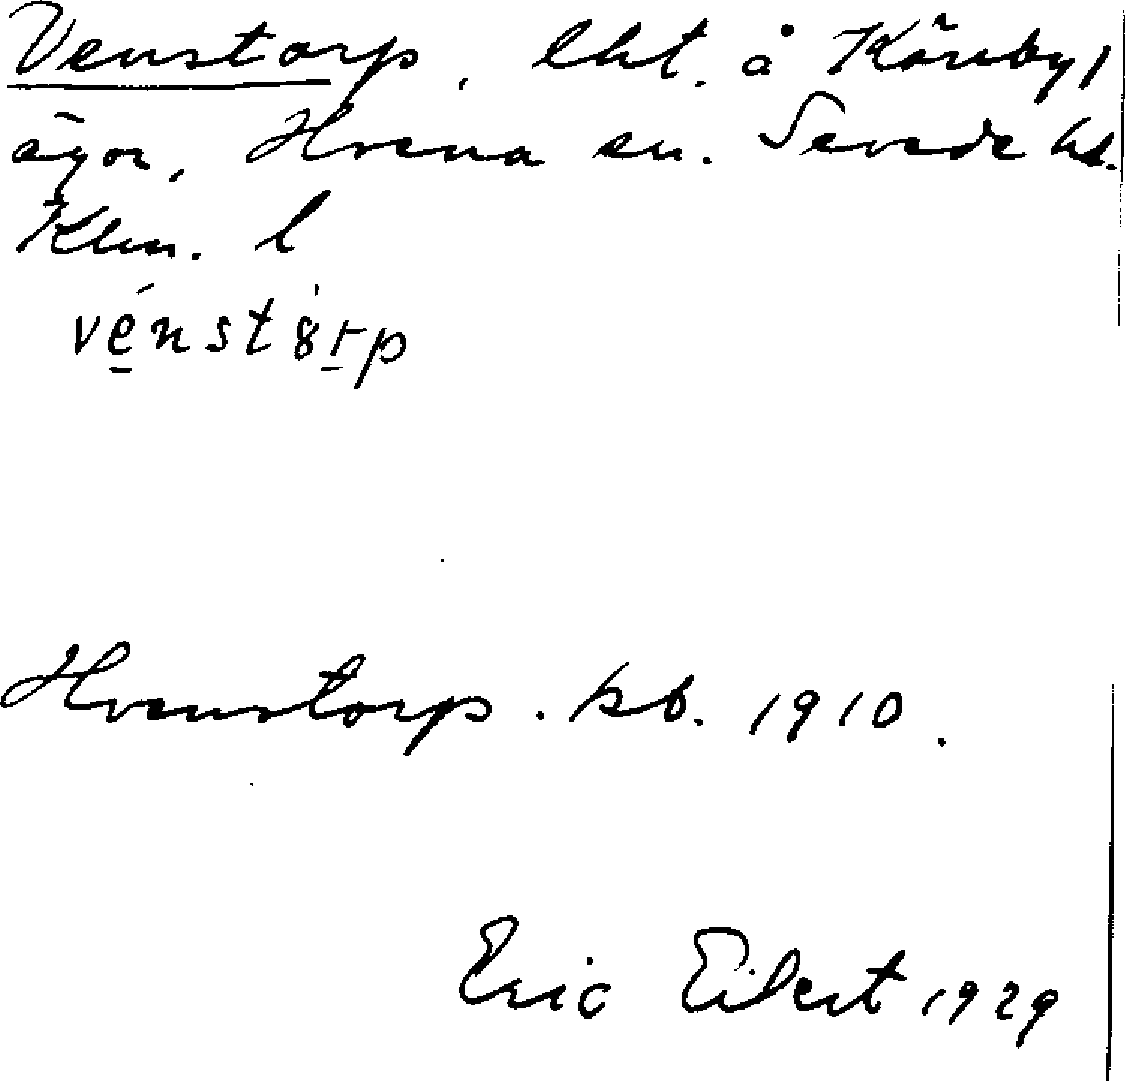 Venstorp, lht. å Kärrby,
ägor, Hvena sn. Sevede hd.
Klm. l
vénstȣ̀rp
Hvenstorp. kb. 1910.
Eric Eilert 1929